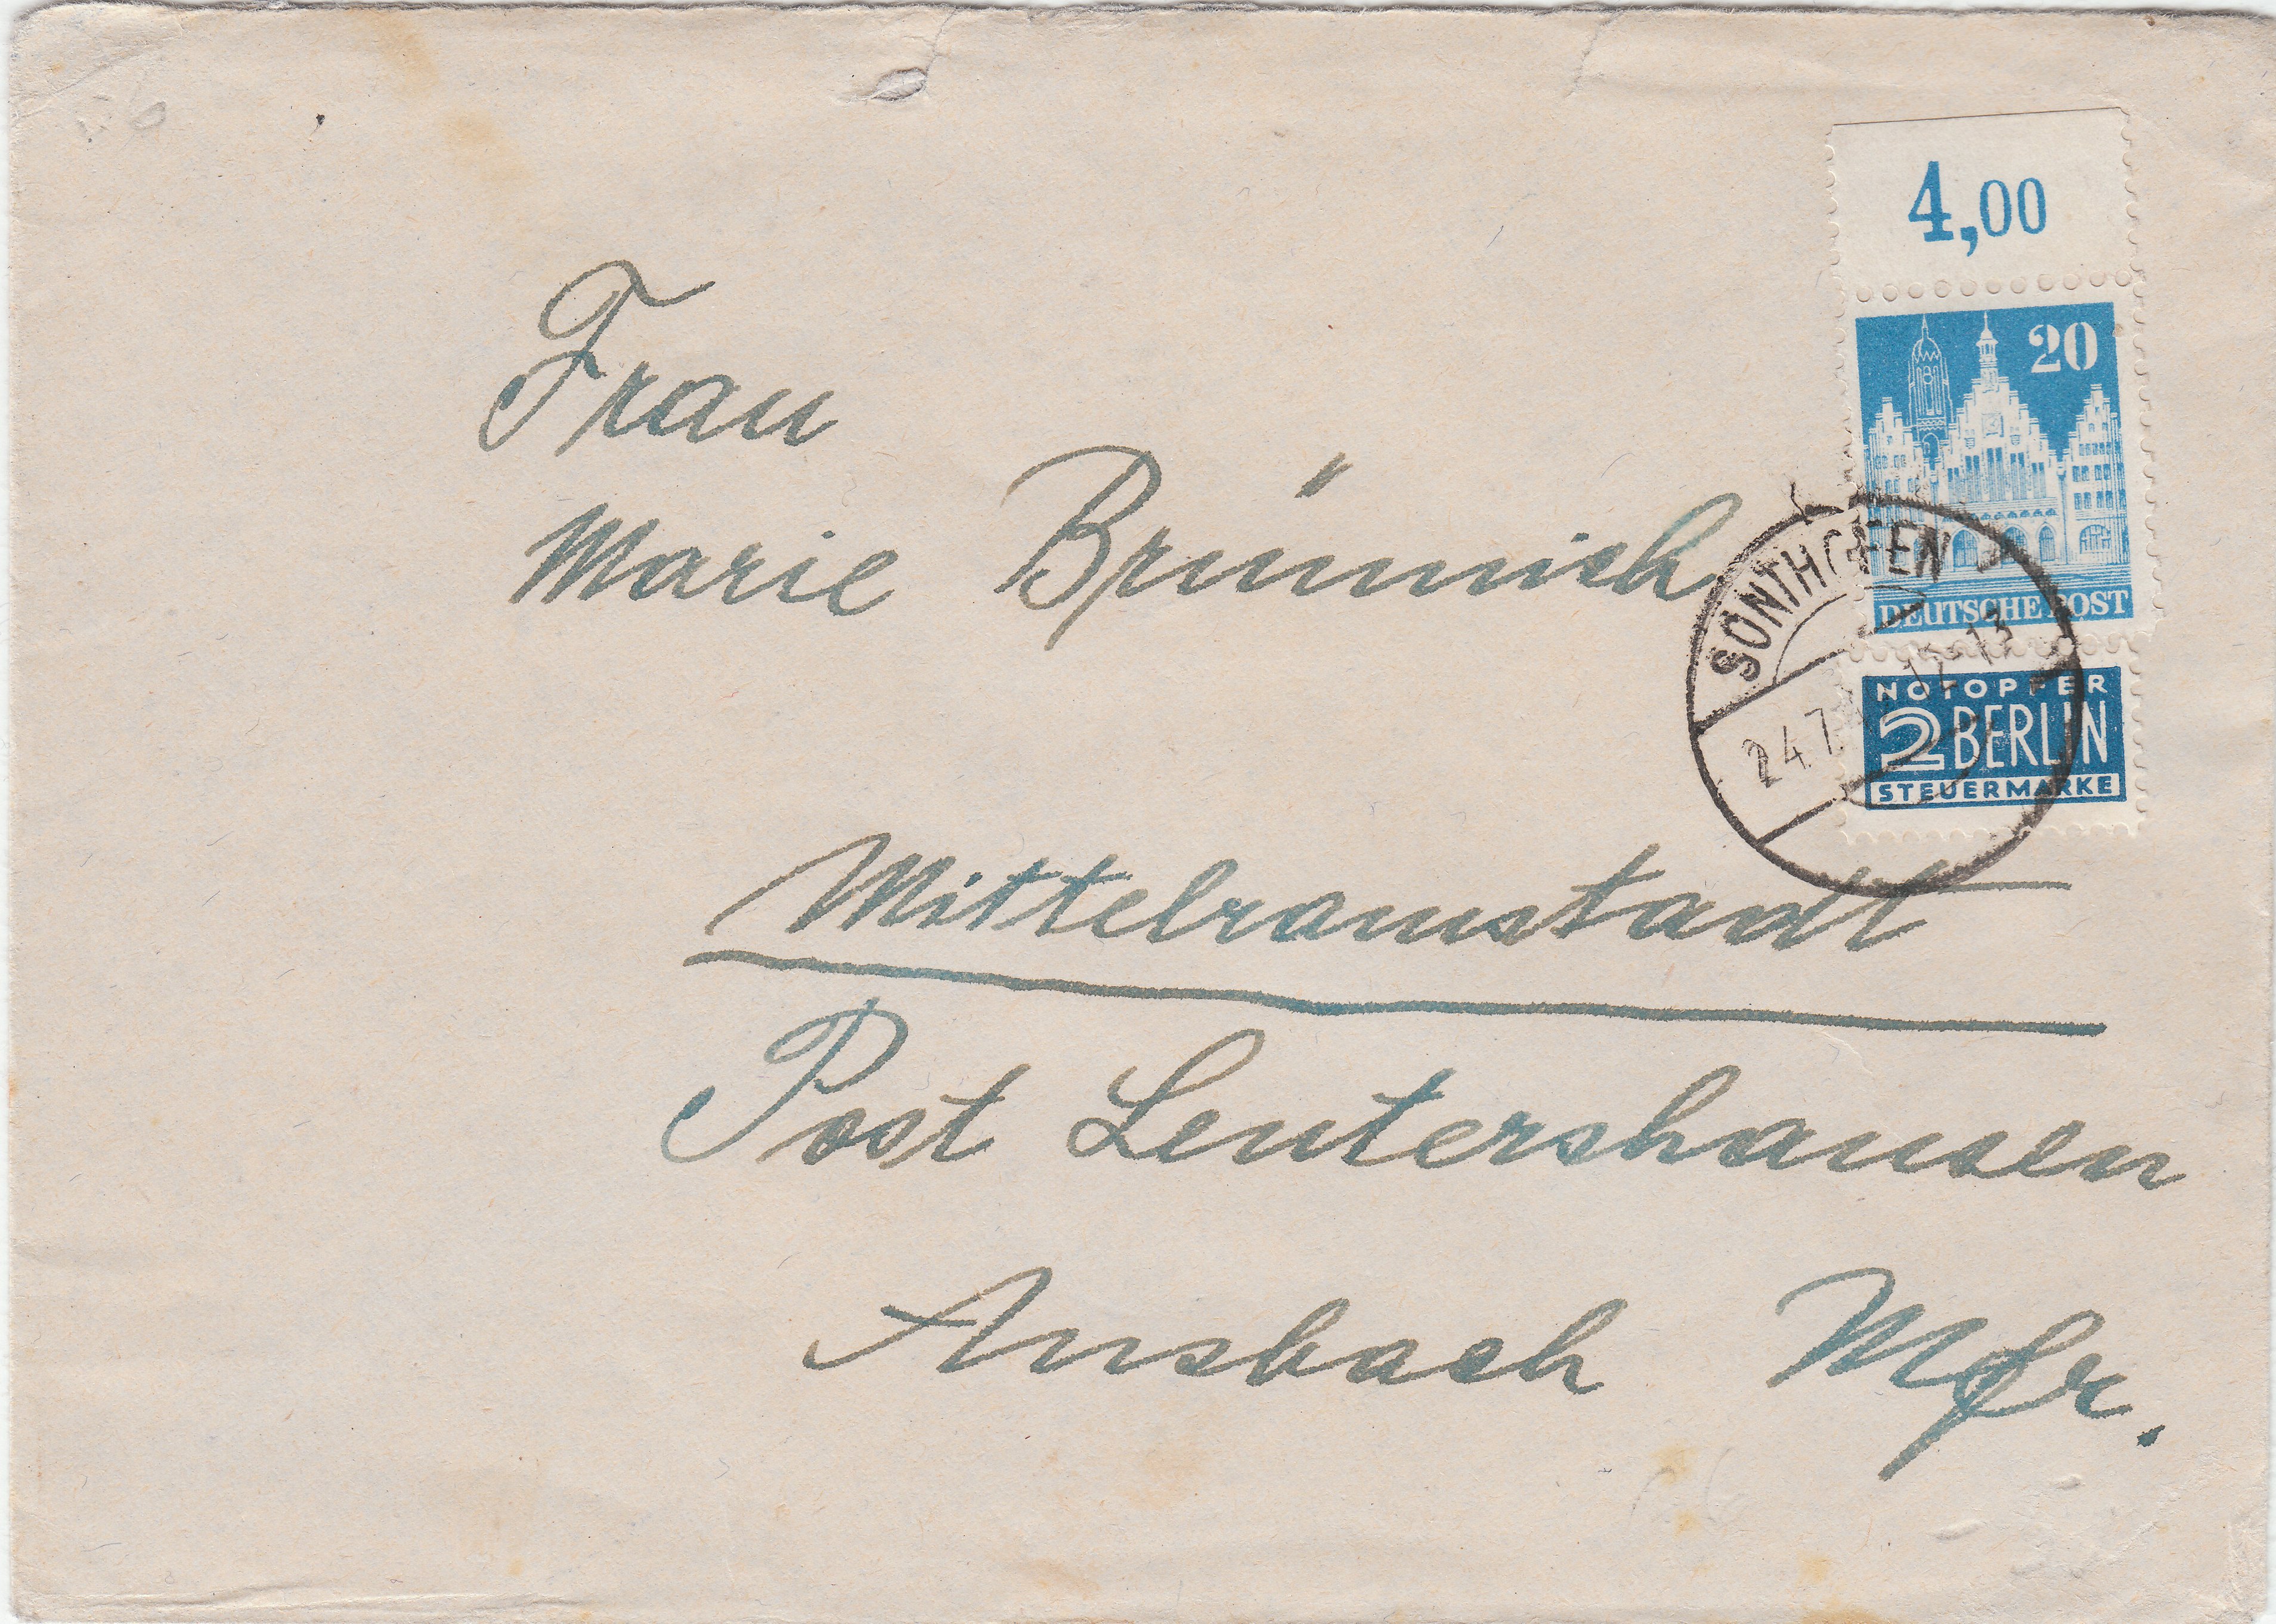 4,00
20
DEUTSCHE POST
NOTOPFER
2 BERLIN
STEUERMARKE
SONTHOFEN
24.7. 12-13
Frau
Marie Brünnich
Mittelramstadt
Post Leutershausen
Ansbach Mfr.